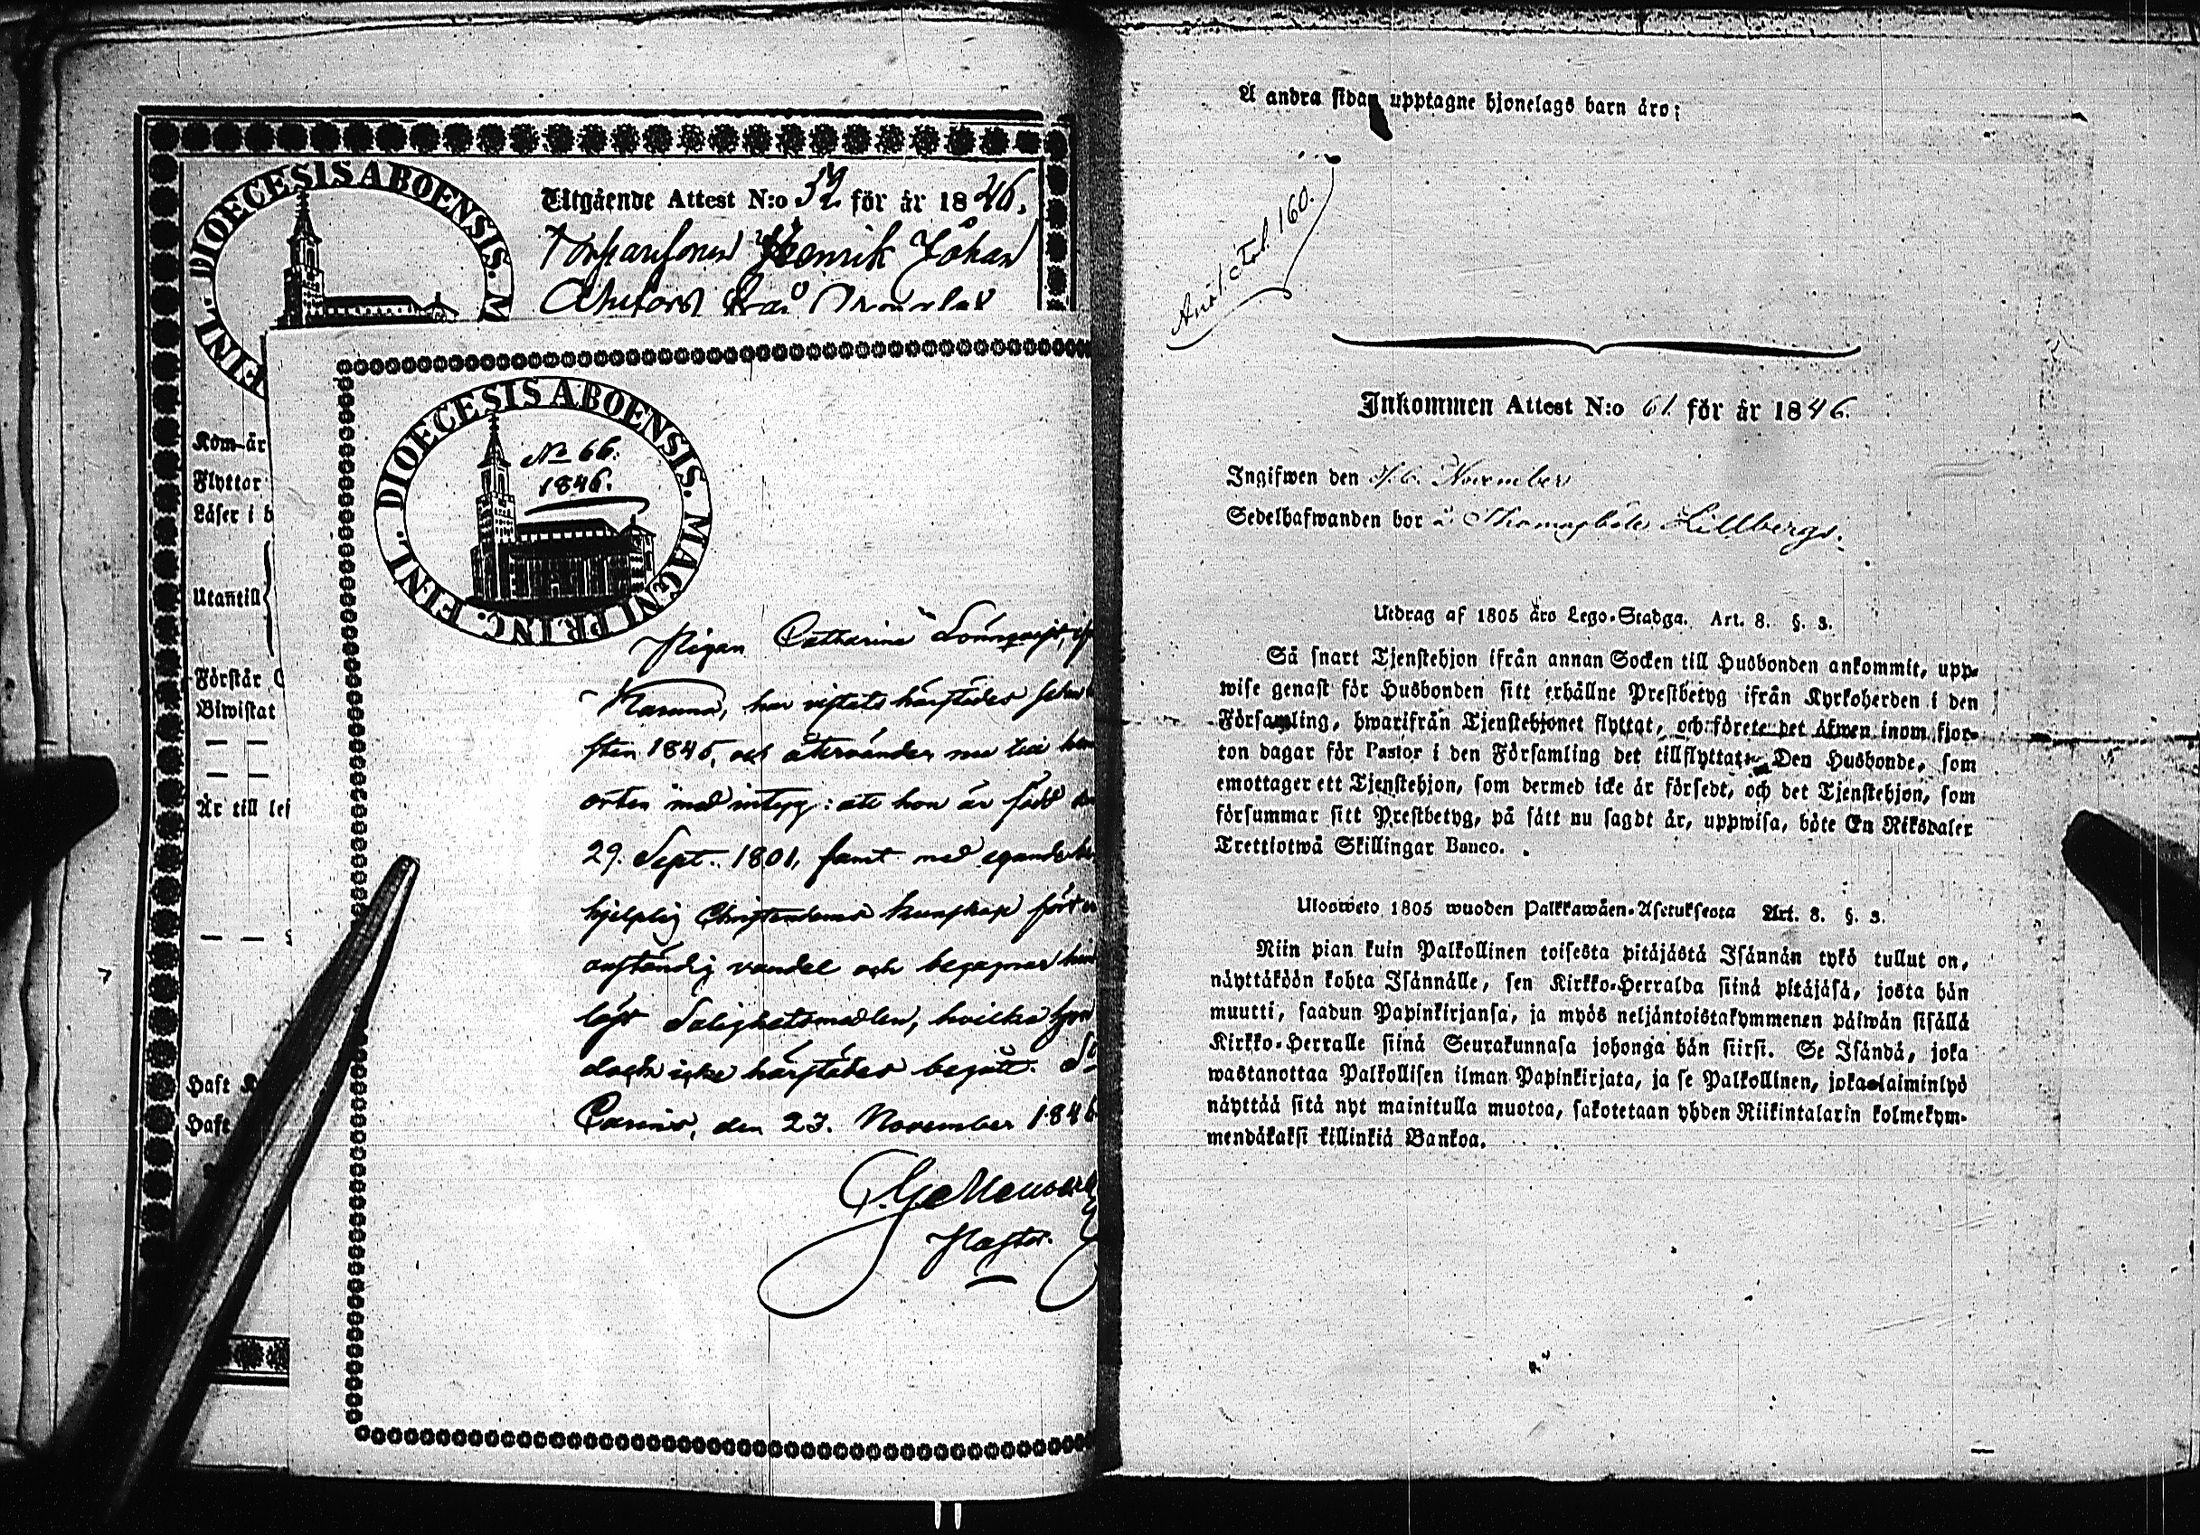 DIOECESIS ABOENSIS. M
FINL.
Utgående Attest N:o 32 för år 1846.
Henrik Johan
från
Kom år
Flyttar
Läser i b
Utantill
Förstår C
Biwistat
— —
— —
År till lef
— —
Haft
Haft
DIOECESIS ABOENSIS. MAGNI PRINC. FINL.
No 66.
1846.
Pigan Catharina Lönnqvist,
Karuna, har vistats härstädes sedan
sten 1845, och återvänder nu till
orten med intyg: att hon är född
29. Sept. 1801, samt med egande
hjelplig Christendoms kunskap fört
anständig vandel och begagnar
löst Salighetsmedlen, hvilka hon
dock icke härstädes begått. St
Carins, den 23. November 1846
Pastor.
Å andra sidan upptagne hjonelags barn äro;
Anöt. Fol. 160.
Inkommen Attest N:o 61. för år 1846.
Ingifwen den November
Sedelhafwanden bor å Thomasböle Lillbergs.
Utdrag af 1805 års Lego-Stadga. Art. 8. §. 3.
Så snart Tjenstehjon ifrån annan Socken till Husbonden ankommit, upp-
wise genast för Husbonden sitt erhållne Prestbetyg ifrån Kyrkoherden i den
Församling, hwarifrån Tjenstehjonet flyttat, och förete det äfwen inom fjor-
ton dagar för Pastor i den Församling det tillflyttat. Den Husbonde, som
emottager ett Tjenstehjon, som dermed icke är försedt, och det Tjenstehjon, som
försummar sitt Prestbetyg, på sätt nu sagdt är, uppwisa, böte En Riksdaler
Trettiotwå Skillingar Banco.
Ulosweto 1805 wuoden Palkkawäen-Asetuksesta Art. 8. §. 3.
Niin pian kuin Palkollinen toisesta pitäjästä Isännän tykö tullut on,
näyttäköön kohta Isännälle, sen Kirkko-Herralda siinä pitäjäsä, josta hän
muutti, saadun Papinkirjansa, ja myös neljäntoistakymmenen päiwän sisällä
Kirkko-Herralle siinä Seurakunnasa johonga hän siirsi. Se Isändä, joka
wastanottaa Palkollisen ilman Papinkirjata, ja se Palkollinen, joka laiminlyö
näyttää sitä nyt mainitulla muotoa, sakotetaan yhden Riikintalarin kolmekym-
mendäkaksi killinkiä Bankoa.